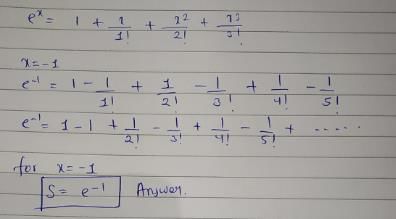 e^x = 1 + x/1! + x²/2! + x³/3!
x = -1
e^-1 = 1 - 1/1! + 1/2! - 1/3! + 1/4! - 1/5!
e^-1 = 1 - 1 + 1/2! - 1/3! + 1/4! - 1/5! + .....
for x = -1
S = e^-1 Answer.